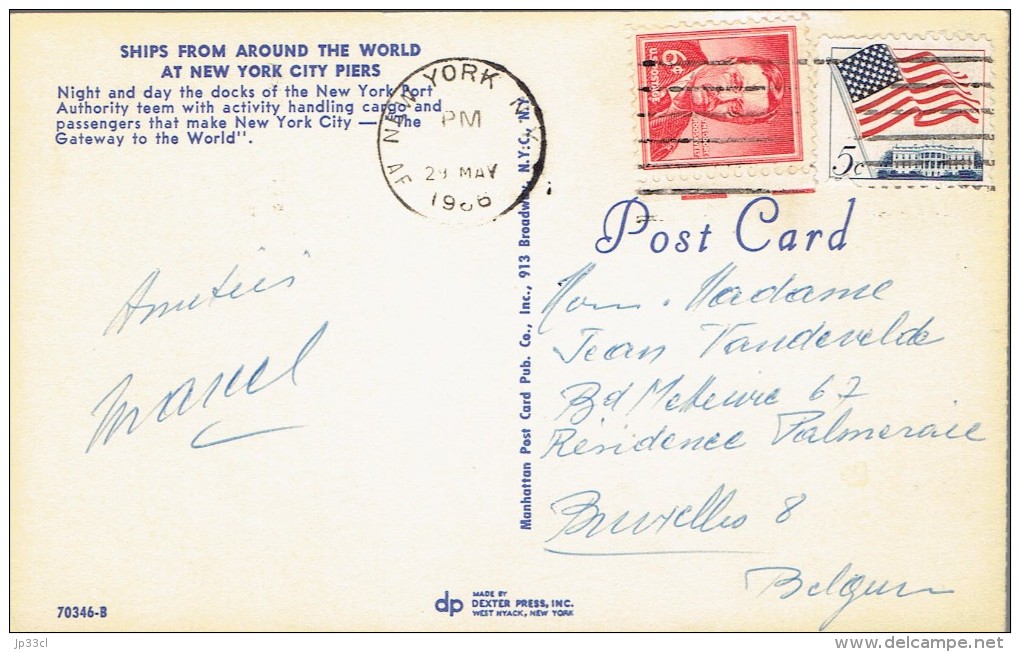 SHIPS FROM AROUND THE WORLD
AT NEW YORK CITY PIERS
Night and day the docks of the New York Port
Authority teem with activity handling cargo and
passengers that make New York City — "The
Gateway to the World".
NEW YORK N.Y.
PM
29 MAY
1966
5c
Post Card
Amitiés
Marcel
Manhattan Post Card Pub. Co., Inc., 913 Broadway, N.Y.C., N.Y.
Madame
Jean Vandevelde
Bd 67
Résidence Palmeraie
Bruxelles 8
Belgium
70346-B
dp MADE BY
DEXTER PRESS, INC.
WEST NYACK, NEW YORK
jp33cl
delcampe.net